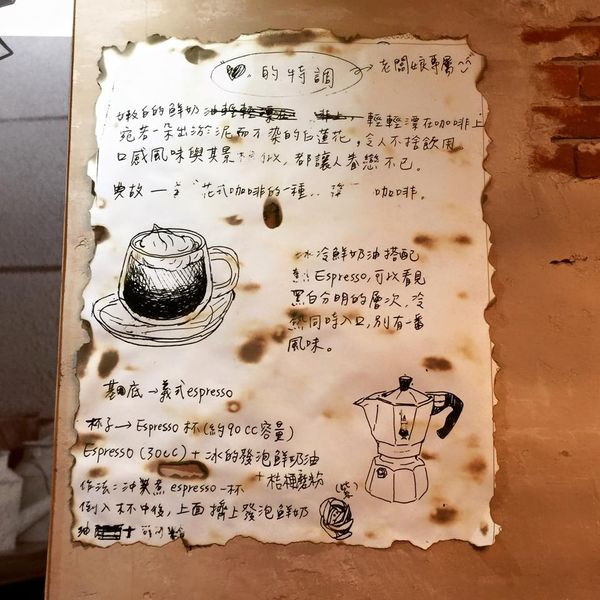 的特調 → 老闆娘專屬
嫩白的鮮奶油輕輕漂在咖啡上
宛若一朵出淤泥而不染的白蓮花，令人不捨飲用
口感風味與其景，都讓人眷戀不已。
典故 一 花式咖啡的一種.. 咖啡。
冰冷鮮奶油搭配
Espresso，可以看見
黑白分明的層次，冷
熱同時入口，別有一番
風味。
基底 → 義式espresso
杯子 → Espresso 杯(約90cc容量)
Espresso (30cc) + 冰的發泡鮮奶油
+ 桔梗
作法：沖煮 espresso 一杯 (紫)
倒入杯中後，上面擠上發泡鮮奶
油